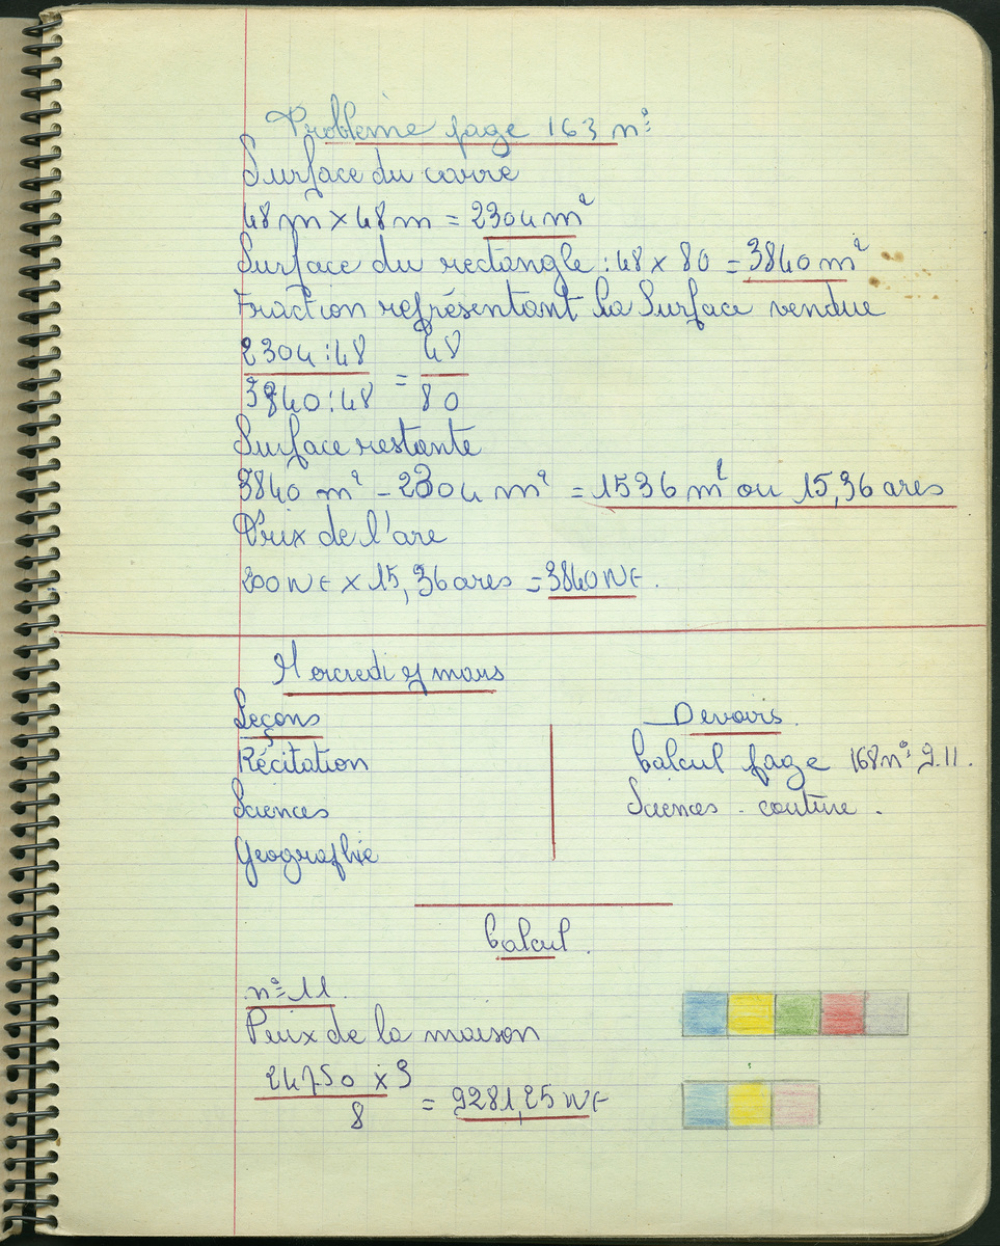 Problème page 163 n°
Surface du carré
48 m × 48 m = 2304 m²
Surface du rectangle : 48 × 80 = 3840 m²
Fraction représentant la Surface vendue
2304 : 48 = 48
3840 : 48 80
Surface restante
3840 m² - 2304 m² = 1536 m² ou 15,36 ares
Prix de l'are
200 NF × 15,36 ares = 3840 NF.
Mercredi mars
Leçons
Devoirs.
Récitation
Calcul page 168 n° 9.11.
Sciences
Sciences - couture.
Géographie
Calcul.
n° 11.
Prix de la maison
24750 × 3
8 = 9281,25 NF